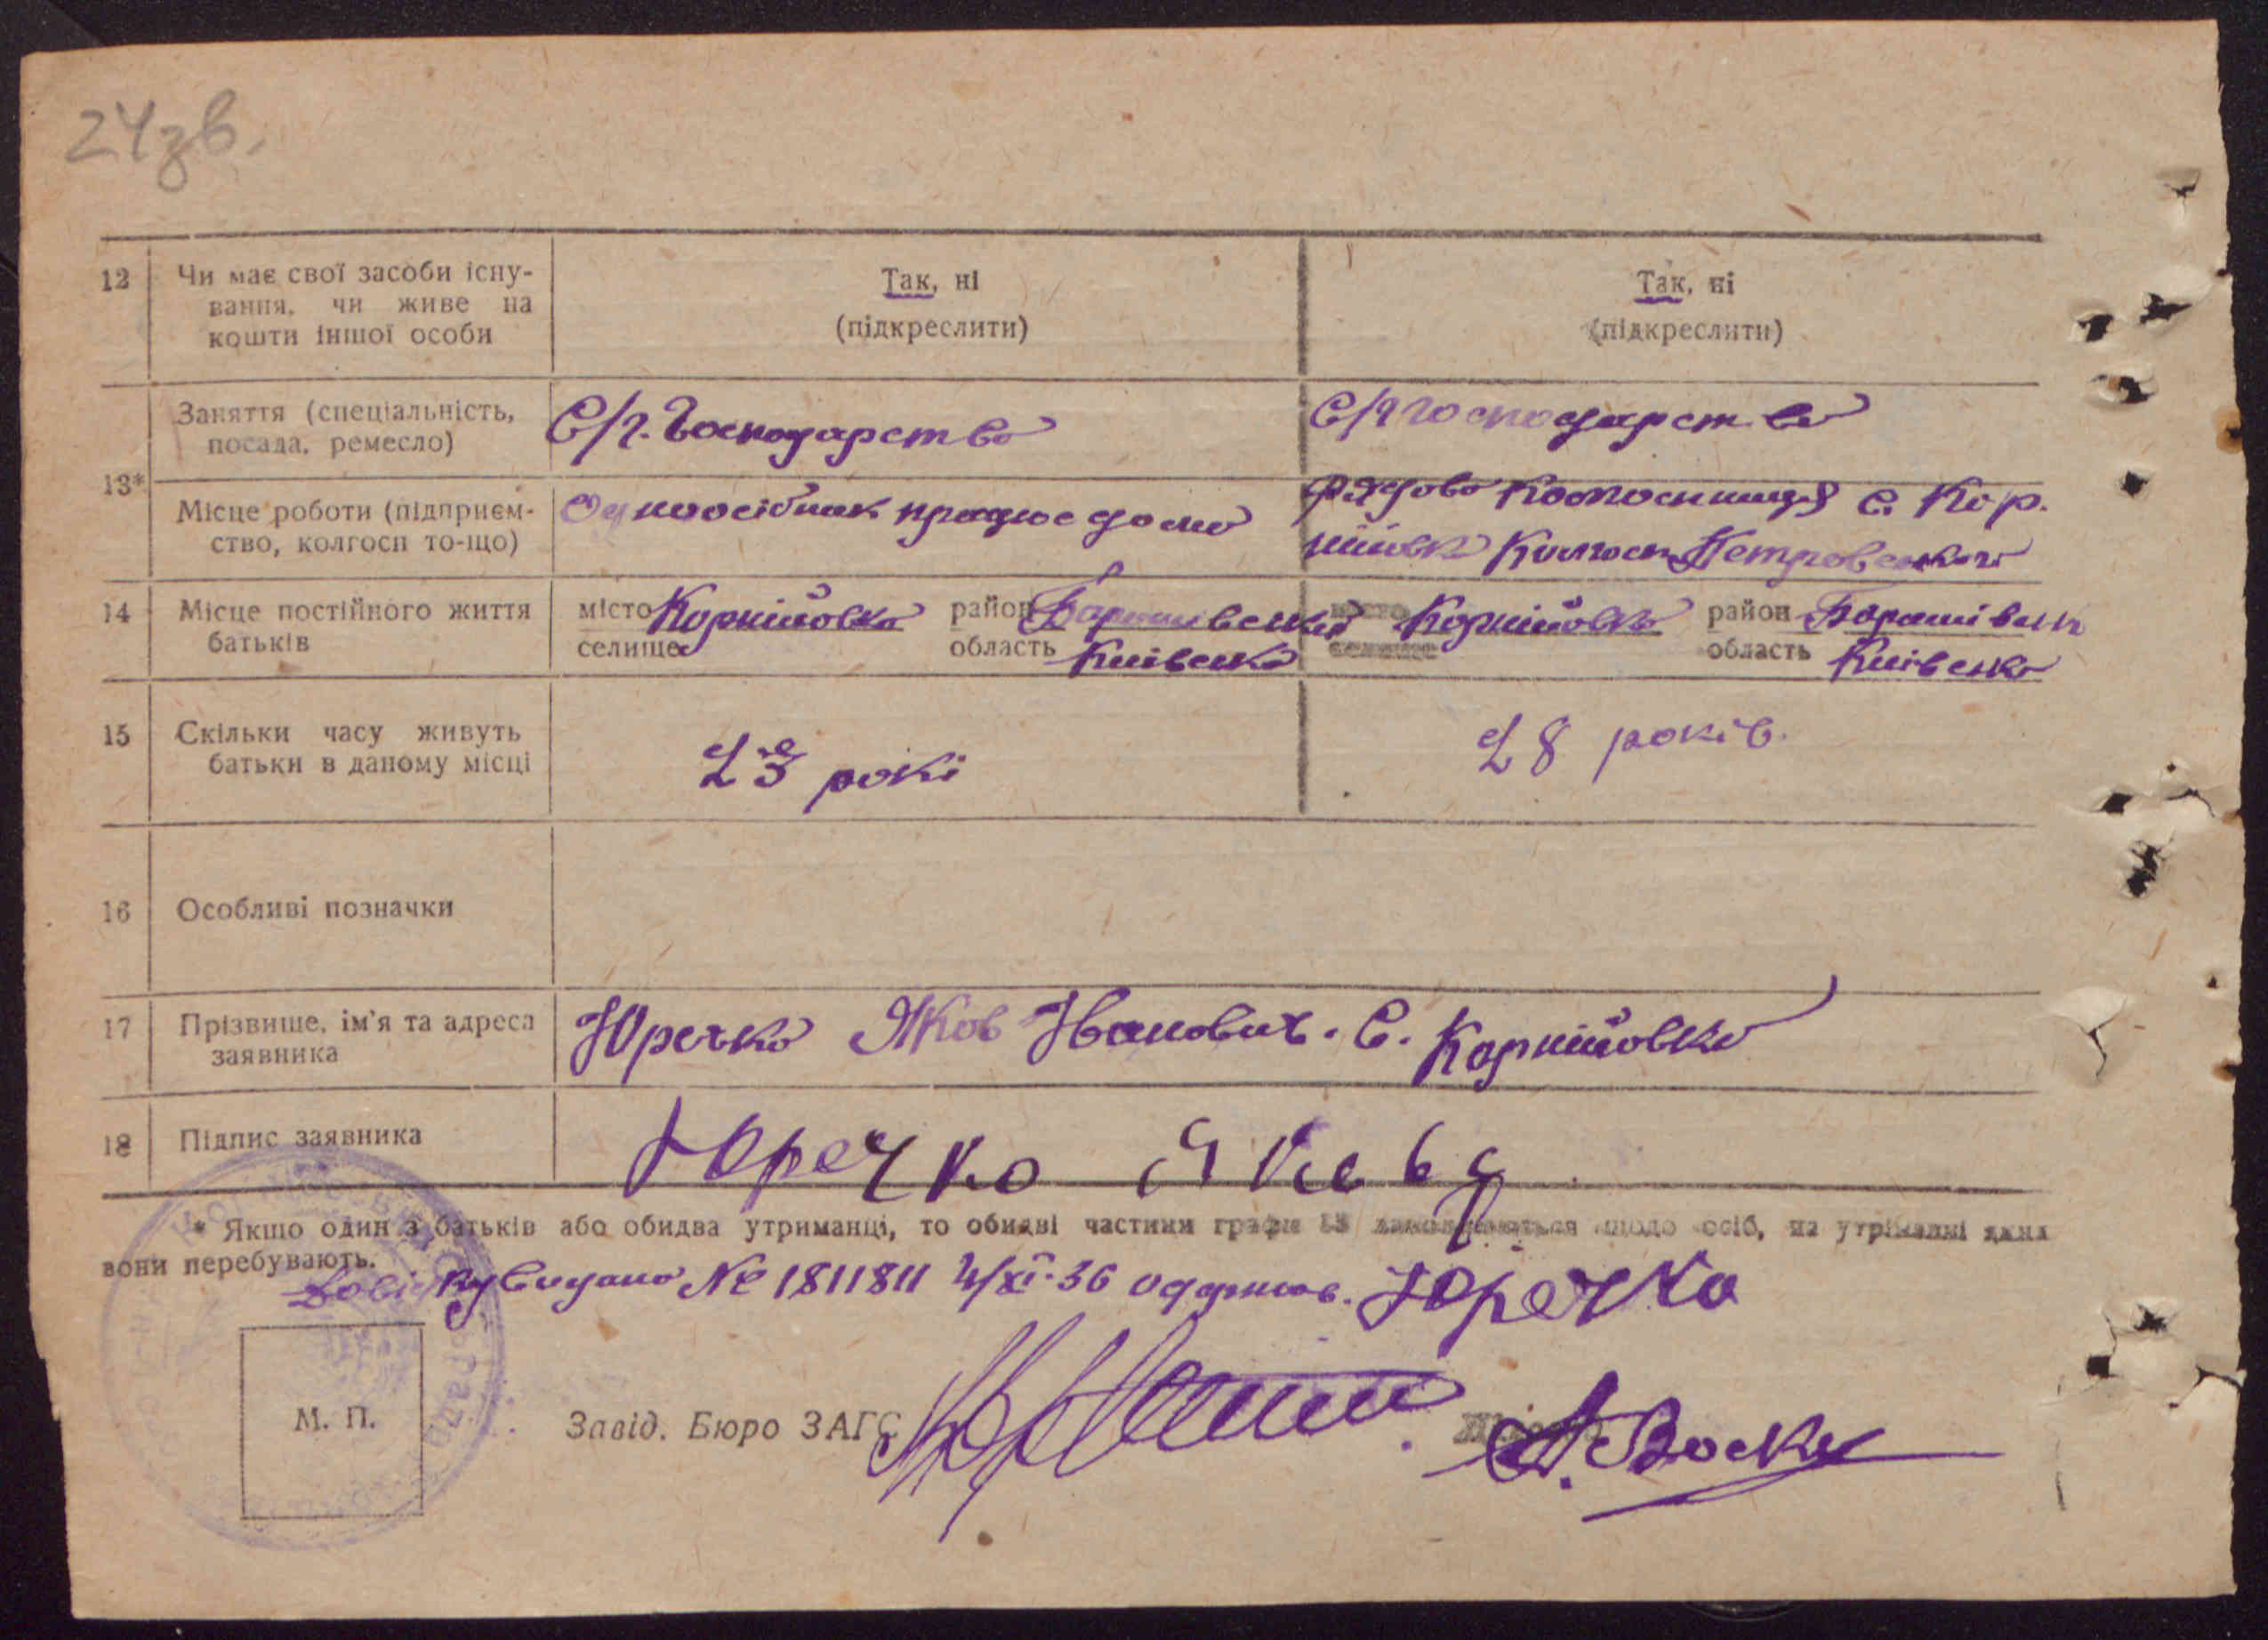 24зв.
12 Чи має свої засоби існу-
вання, чи живе на
кошти іншої особи
Так, ні
(підкреслити)
Так, ні
(підкреслити)
13*
Заняття (спеціальність,
посада, ремесло)
С/г. Господарство
С/г господарство
Місце роботи (підприєм-
ство, колгосп то-що)
Одноосібник працює дома
рядова колгосниця С. Кор.
нійовк Колгосп Петровського
14 Місце постійного життя
батьків
місто Корнійовка район Баришівський
селище область Київська
місто Корнійовка район Баришівськ
селище область Київська
15 Скільки часу живуть
батьки в даному місці
23 рокі
28 років.
16 Особливі позначки
17 Прізвище, ім'я та адреса
заявника
Юречко Яков Іванович. С. Корнійовка
18 Підпис заявника
Юречко
* Якщо один з батьків або обидва утриманці, то обидві частини графи 13 заповнюються щодо осіб, на утриманні яких
вони перебувають.
Довідку видано № 1811811 4/XI-36 Юречко
М. П.
Завід. Бюро ЗАГС